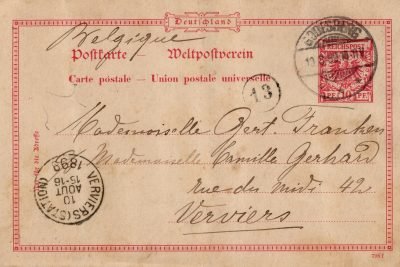 Deutschland
Belgique
Postkarte — Weltpostverein
Carte postale — Union postale universelle
REICHSPOST
13
Mademoiselle Bert. Franken
Mademoiselle Camille Gerhard
rue du midi 42
Verviers
VERVIERS (STATION)
10
AOUT
15-16
1899